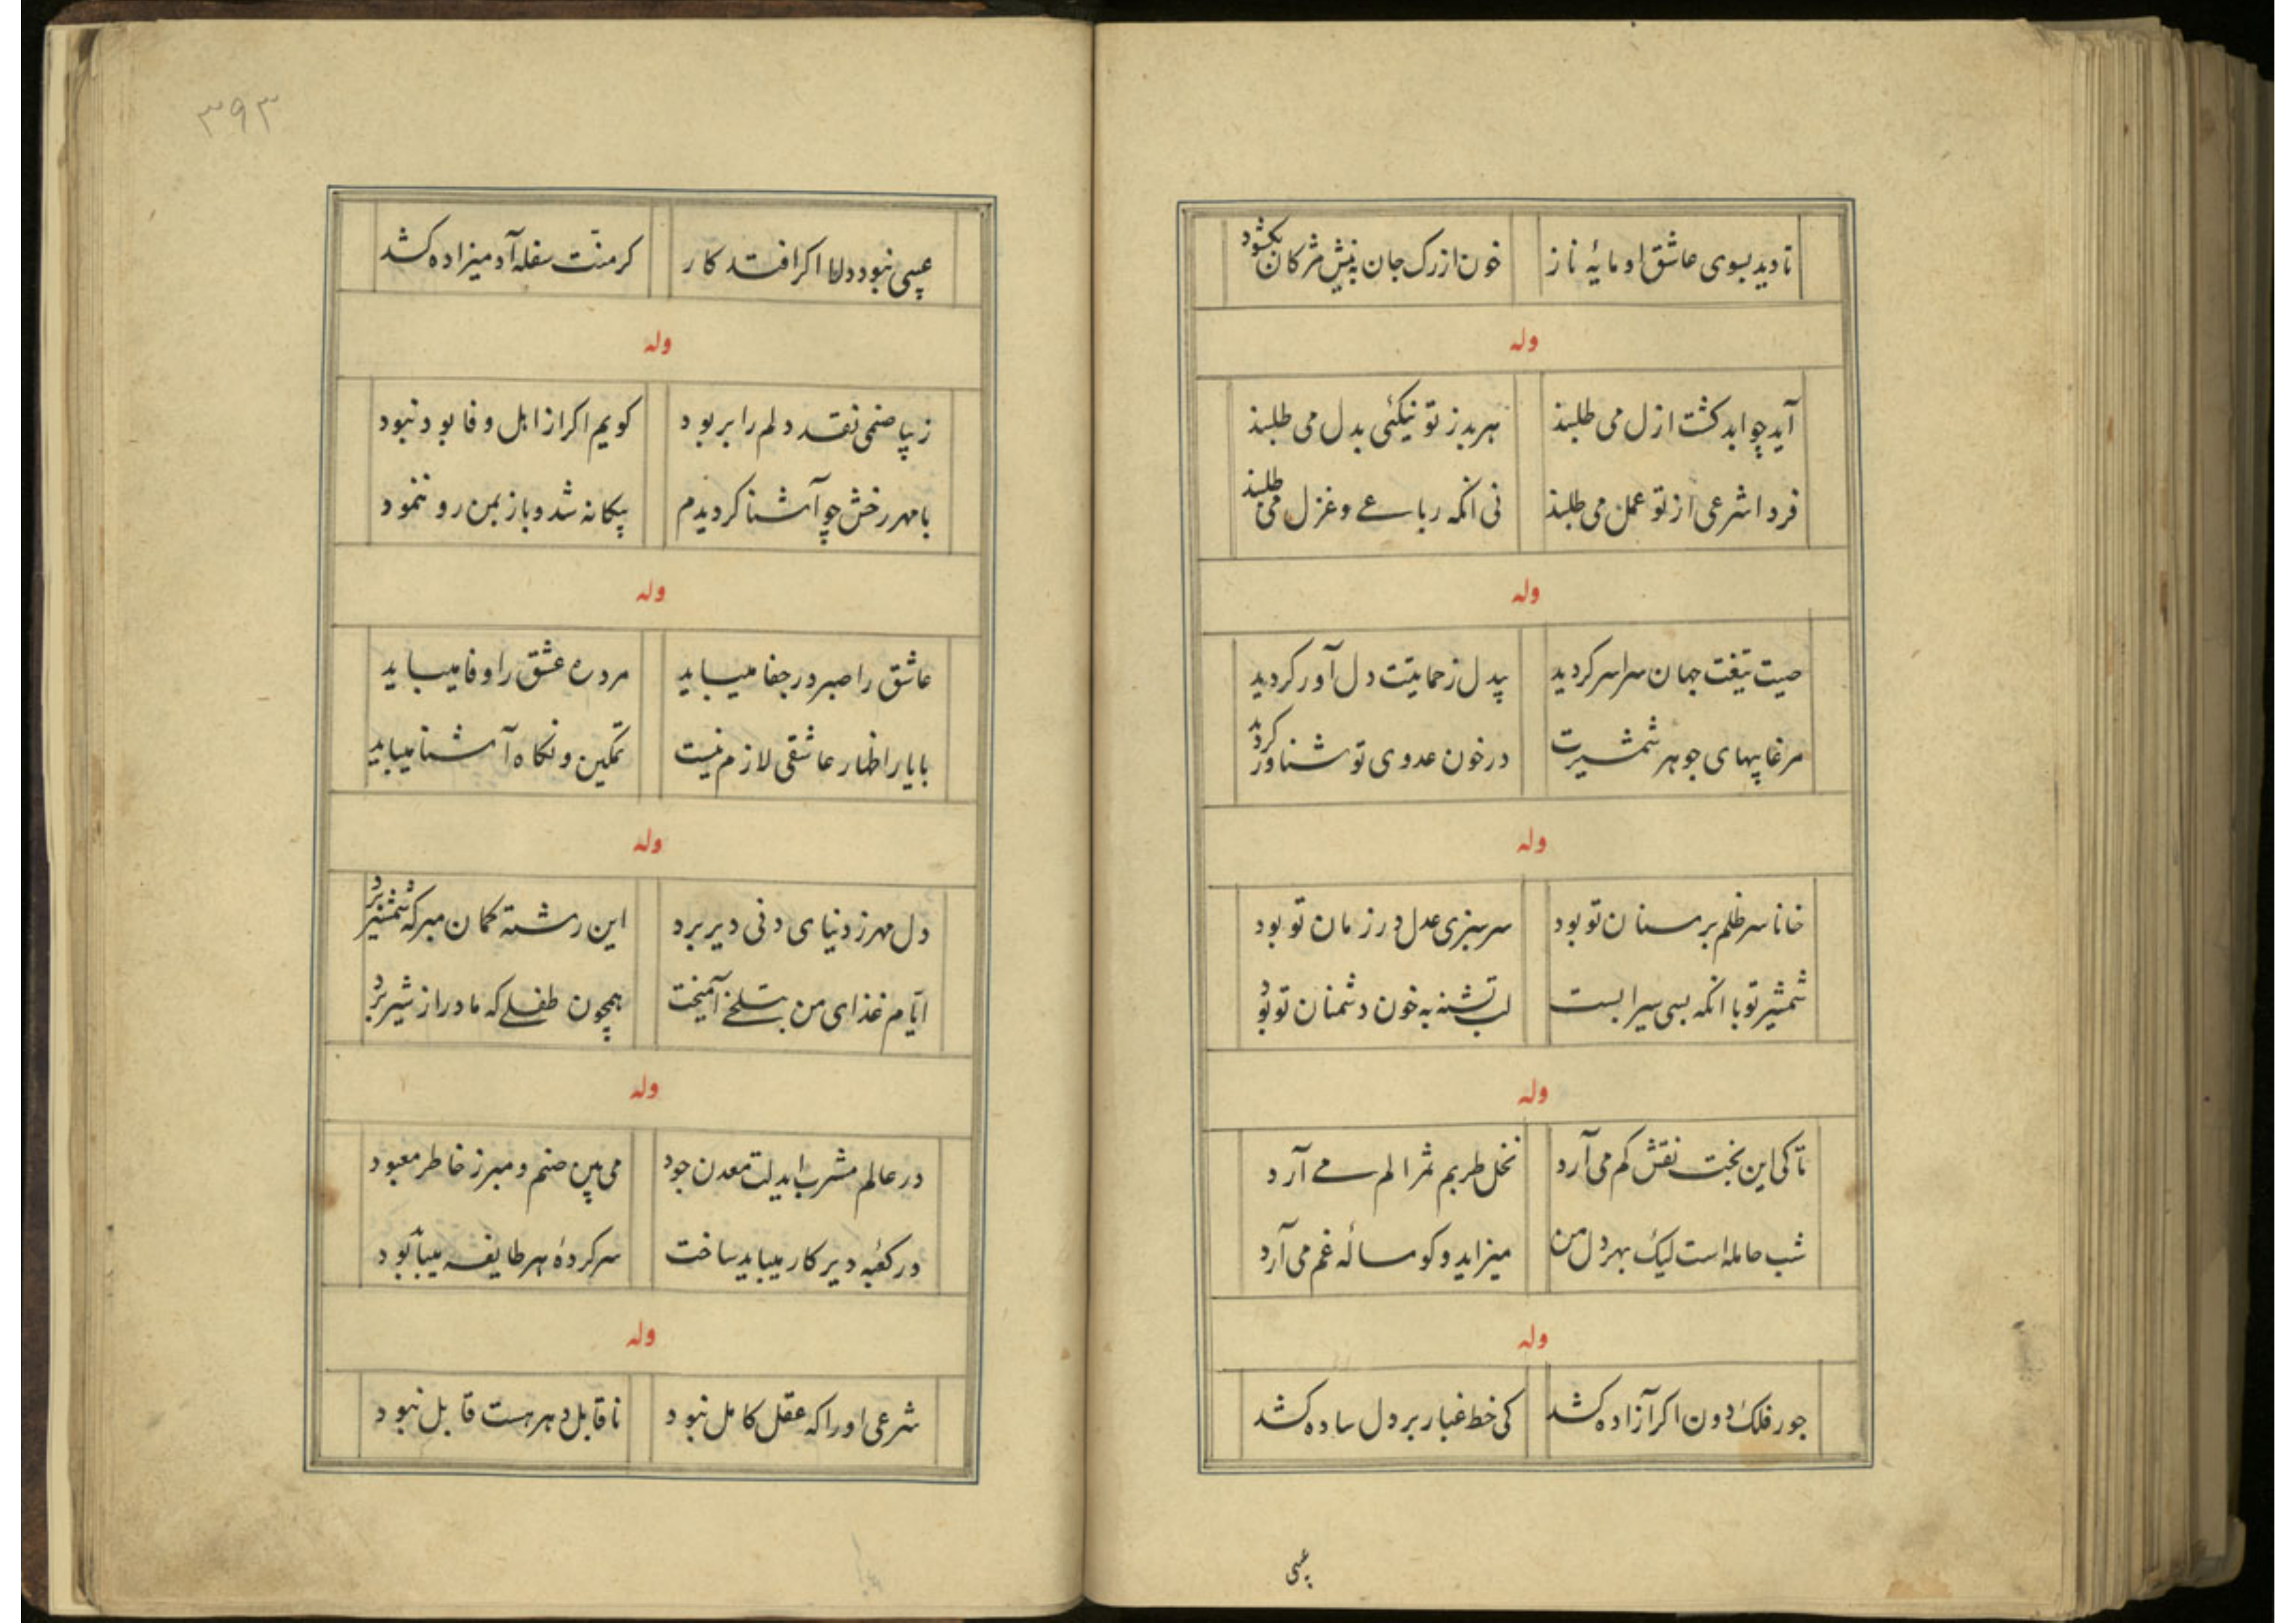 تا دید بسوی عاشق او مایهٔ ناز خون از رک جان به نیش مژکان بکشود
وله
آید چو ابد کشت ازل می طلبند هر بد ز تو نیکئی بدل می طلبند
فردا شرعی از تو عمل می طلبند نی انکه رباعے و غزل می طلبند
وله
صیت تیغت جهان سراسر کردید بیدل ز حمایتت دل آور کردید
مرغابیهای جوهر شمشیرت در خون عدوی تو شناور کردید
وله
خانا سر ظلم بر سنان تو بود سرسبزی عدل در زمان تو بود
شمشیر تو با انکه بسی سیرابست لب تشنه به خون دشمنان تو بود
وله
تا کی این بخت نقش کم می آرد نخل طربم ثمر الم مے آرد
شب حامله است لیک بهر دل من میزاید و کوساله غم می آرد
وله
جور فلک دون اکر آزاده کشد کی خط غبار بر دل ساده کشد
عیبی
۳۹۳
عیبی نبود دلا اکر افتد کار کر منّت سفله آدمیزاده کشد
وله
زیبا صنمی نقد دلم را بربود کویم اکر از اهل وفا بود نبود
با مهر رخش چو آشنا کردیدم بیکانه شد و باز بمن رو ننمود
وله
عاشق را صبر در جفا میباید مرد ره عشق را وفا میباید
با یار اظهار عاشقی لازم نیست تمکین و نکاه آشنا میباید
وله
دل مهر ز دنیای دنی دیر برد این رشته کمان مبر که شمشیر برد
ایّام غذای من بتلخے آمیخت همچون طفلے که مادر از شیر برد
وله
در عالم مشرب ایدلت معدن جود می بین صنم و مبر ز خاطر معبود
در کعبه و دیر کار میباید ساخت سرکردهٔ هر طایفه میباید بود
وله
شرعی او را که عقل کامل نبود ناقابل دهر هست قابل نبود